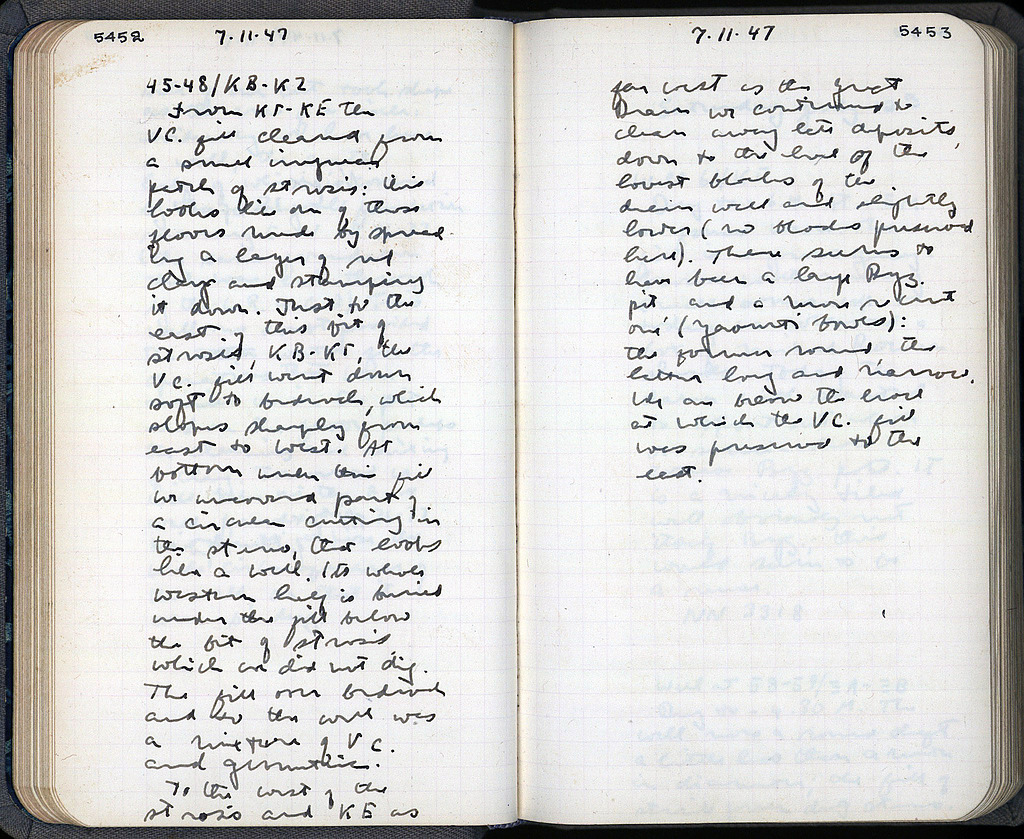 5452
7·11·47
45-48/ΚΒ-ΚΖ
From ΚΓ-ΚΕ the
V C. fill cleared from
a small irregular
patch of strosis: this
looks like one of those
floors made by spread-
ing a layer of red
clay and stamping
it down. Just to the
east of this bit of
strosis, ΚΒ-ΚΓ, the
V C. fill went down
soft to bedrock, which
slopes sharply from
east to west. At
bottom under this fill
we uncovered part of
a circular cutting in
the stereo, that looks
like a well. Its whole
western half is buried
under the fill below
the bit of strosis
which we did not dig.
The fill over bedrock
and in the well was
a mixture of V C.
and geometric.
To the west of the
strosis and ΚΕ as
7·11·47
5453
far west as the Great
Drain we continued to
clear away late deposits,
down to the level of the
lowest blocks of the
drain wall and slightly
lower (no blocks preserved
here). There seems to
have been a large Byz.
pit and a more recent
one (yaourti bowls):
the former round, the
latter long and narrow.
We are below the level
at which the V C. fill
was preserved to the
east.